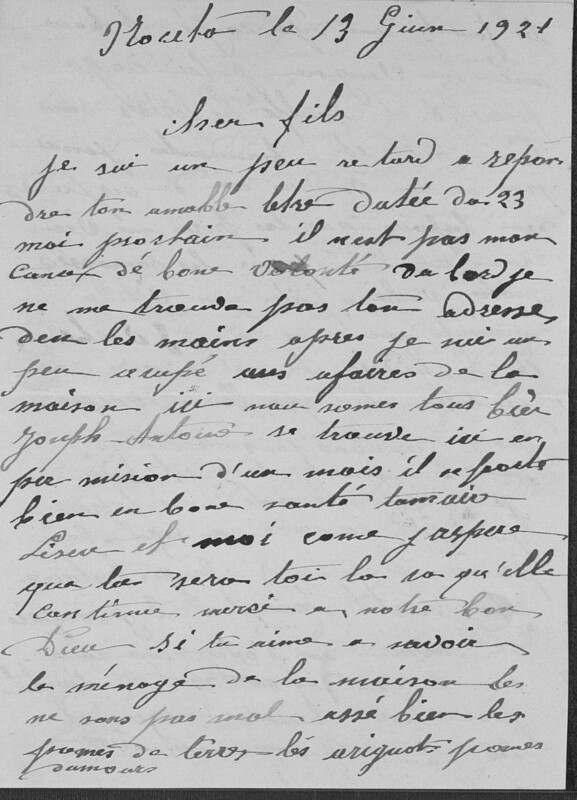 Noceta le 13 Giun 1921
cher fils
je sui un peu re tard a repon
dre ton amable letre datée du 23
moi prochain il n'est pas man
cance dé bone volonté da bord je
ne me trouva pas ton adresse
den les mains apres je sui un
peu ocupé aus afaires de la
maison ici nou somes tous bien
Joseph Antoine se trouve ici en
per mision d'un mois il se porte
bien en bone santé ta maire
et moi come j'aspere
que tu sera toi la sa qu'elle
continue merci a notre bon
Dieu si tu aime a savoir
le ménage de la maison les
ne sons pas mal assé bien les
pomes de terres les arigots pomes
damours